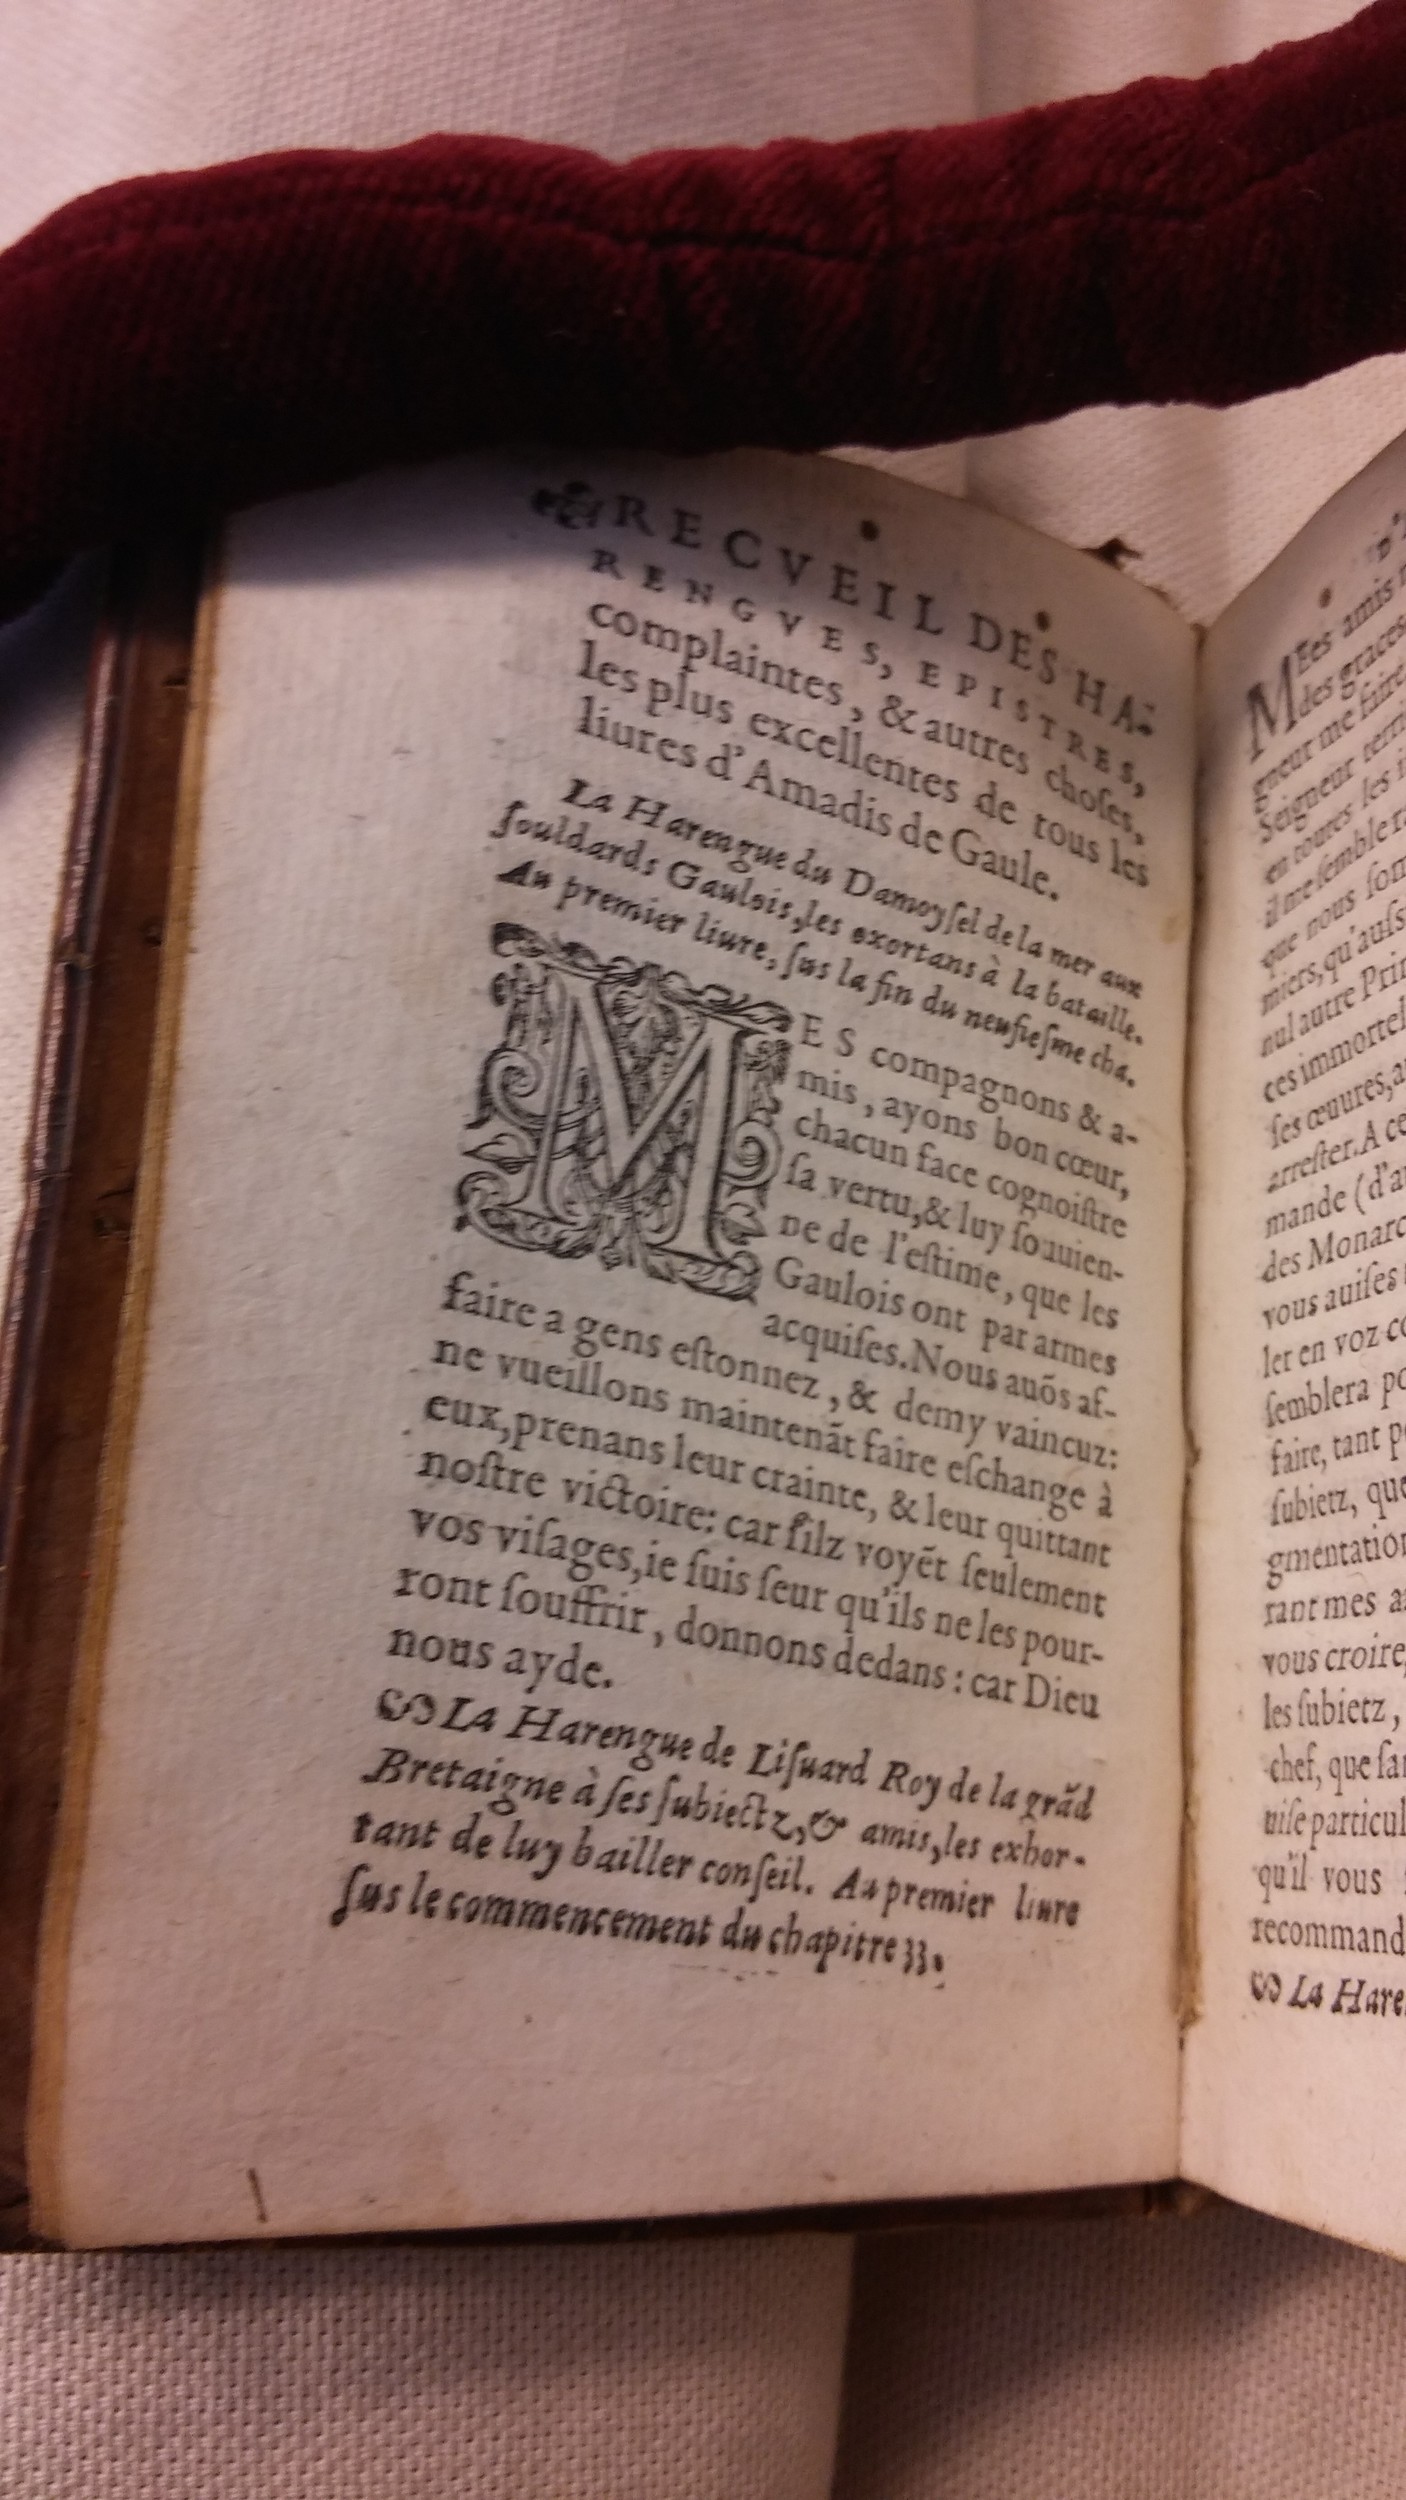 RECVEIL DES HA-
RENGVES, EPISTRES,
complaintes, & autres choſes,
les plus excellentes de tous les
liures d'Amadis de Gaule.
La Harengue du Damoyſel de la mer aux
ſouldards Gaulois, les exortans à la bataille.
Au premier liure, ſus la fin du neufieſme cha.
MES compagnons & a-
mis, ayons bon cœur,
chacun face cognoiſtre
ſa vertu, & luy ſouuien-
ne de l'eſtime, que les
Gaulois ont par armes
acquiſes. Nous auõs af-
faire a gens eſtonnez, & demy vaincuz:
ne vueillons maintenãt faire eſchange à
eux, prenans leur crainte, & leur quittant
noſtre victoire: car ſilz voyẽt ſeulement
vos viſages, ie ſuis ſeur qu'ils ne les pour-
ront ſouffrir, donnons dedans: car Dieu
nous ayde.
La Harengue de Liſuard Roy de la grãd
Bretaigne à ſes ſubiectz, & amis, les exhor-
tant de luy bailler conſeil. Au premier liure
ſus le commencement du chapitre 33.
D'
MEes amis
des graces
gneur me faire
Seigneur terri
en toutes les
il me ſemblera
que nous ſom
miers, qu'auſs
nul autre Prin
ces immortel
ſes œuures, a
arreſter. A ce
mande (d'au
des Monarc
vous auiſes
ler en voz co
ſemblera po
faire, tant p
ſubietz, que
gmentation
rant mes a
vous croire,
les ſubietz,
chef, que ſan
uiſe particul
qu'il vous
recommand
La Hare